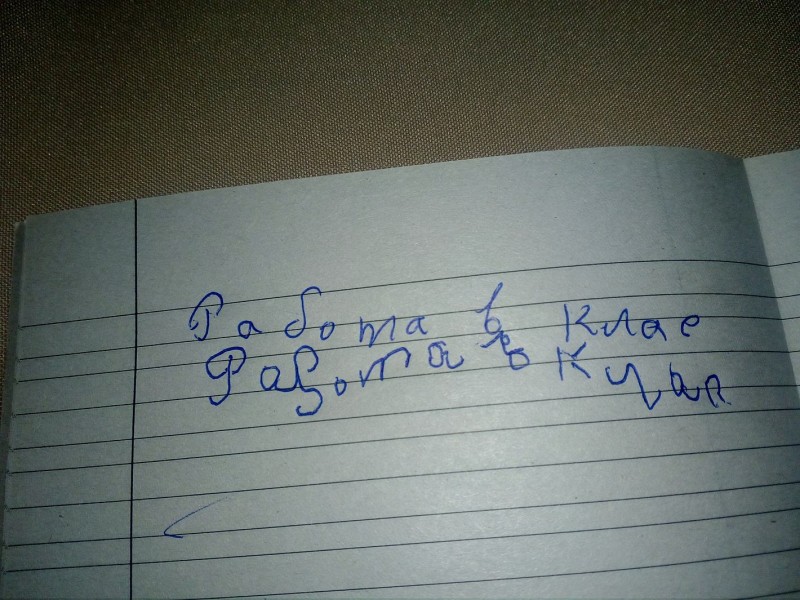 Работа в клас
Работа в